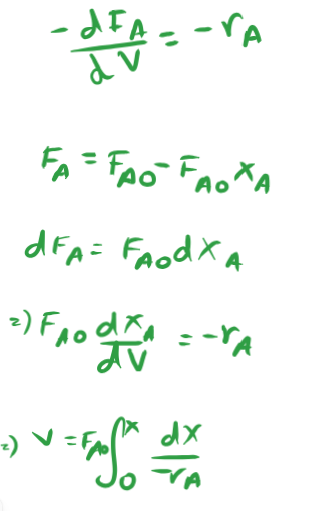 - dF_A / dV = - r_A
F_A = F_A0 - F_A0 x_A
dF_A = F_A0 dx_A
=) F_A0 dx_A / dV = - r_A
=) V = F_A0 ∫_0^x dx / -r_A